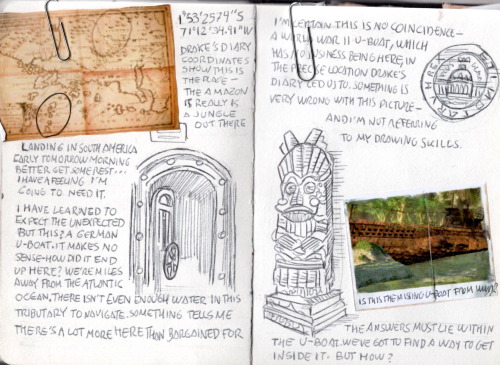 1°53'25.74"S
71°12'34.91"W
DRAKE'S DIARY
COORDINATES
SHOW THIS IS
THE PLACE -
THE AMAZON
IS REALLY IS
A JUNGLE
OUT THERE
LANDING IN SOUTH AMERICA
EARLY TOMORROW MORNING
BETTER GET SOME REST...
I HAVE A FEELING I'M
GOING TO NEED IT.
I HAVE LEARNED TO
EXPECT THE UNEXPECTED
BUT THIS? A GERMAN
U-BOAT. IT MAKES NO
SENSE-HOW DID IT END
UP HERE? WE'RE MILES
AWAY FROM THE ATLANTIC
OCEAN. THERE ISN'T EVEN ENOUGH WATER IN THIS
TRIBUTARY TO NAVIGATE. SOMETHING TELLS ME
THERE'S A LOT MORE HERE THAN BARGAINED FOR
I'M CERTAIN THIS IS NO COINCIDENCE -
A WORLD WAR II U-BOAT, WHICH
HAS NO BUSINESS BEING HERE, IN
THE PRECISE LOCATION DRAKE'S
DIARY LED US TO. SOMETHING IS
VERY WRONG WITH THIS PICTURE -
AND I'M NOT REFERRING
TO MY DRAWING SKILLS.
IS THIS THE MISSING U-BOAT FROM WWII?
THE ANSWERS MUST LIE WITHIN
THE U-BOAT. WE'VE GOT TO FIND A WAY TO GET
INSIDE IT. BUT HOW?